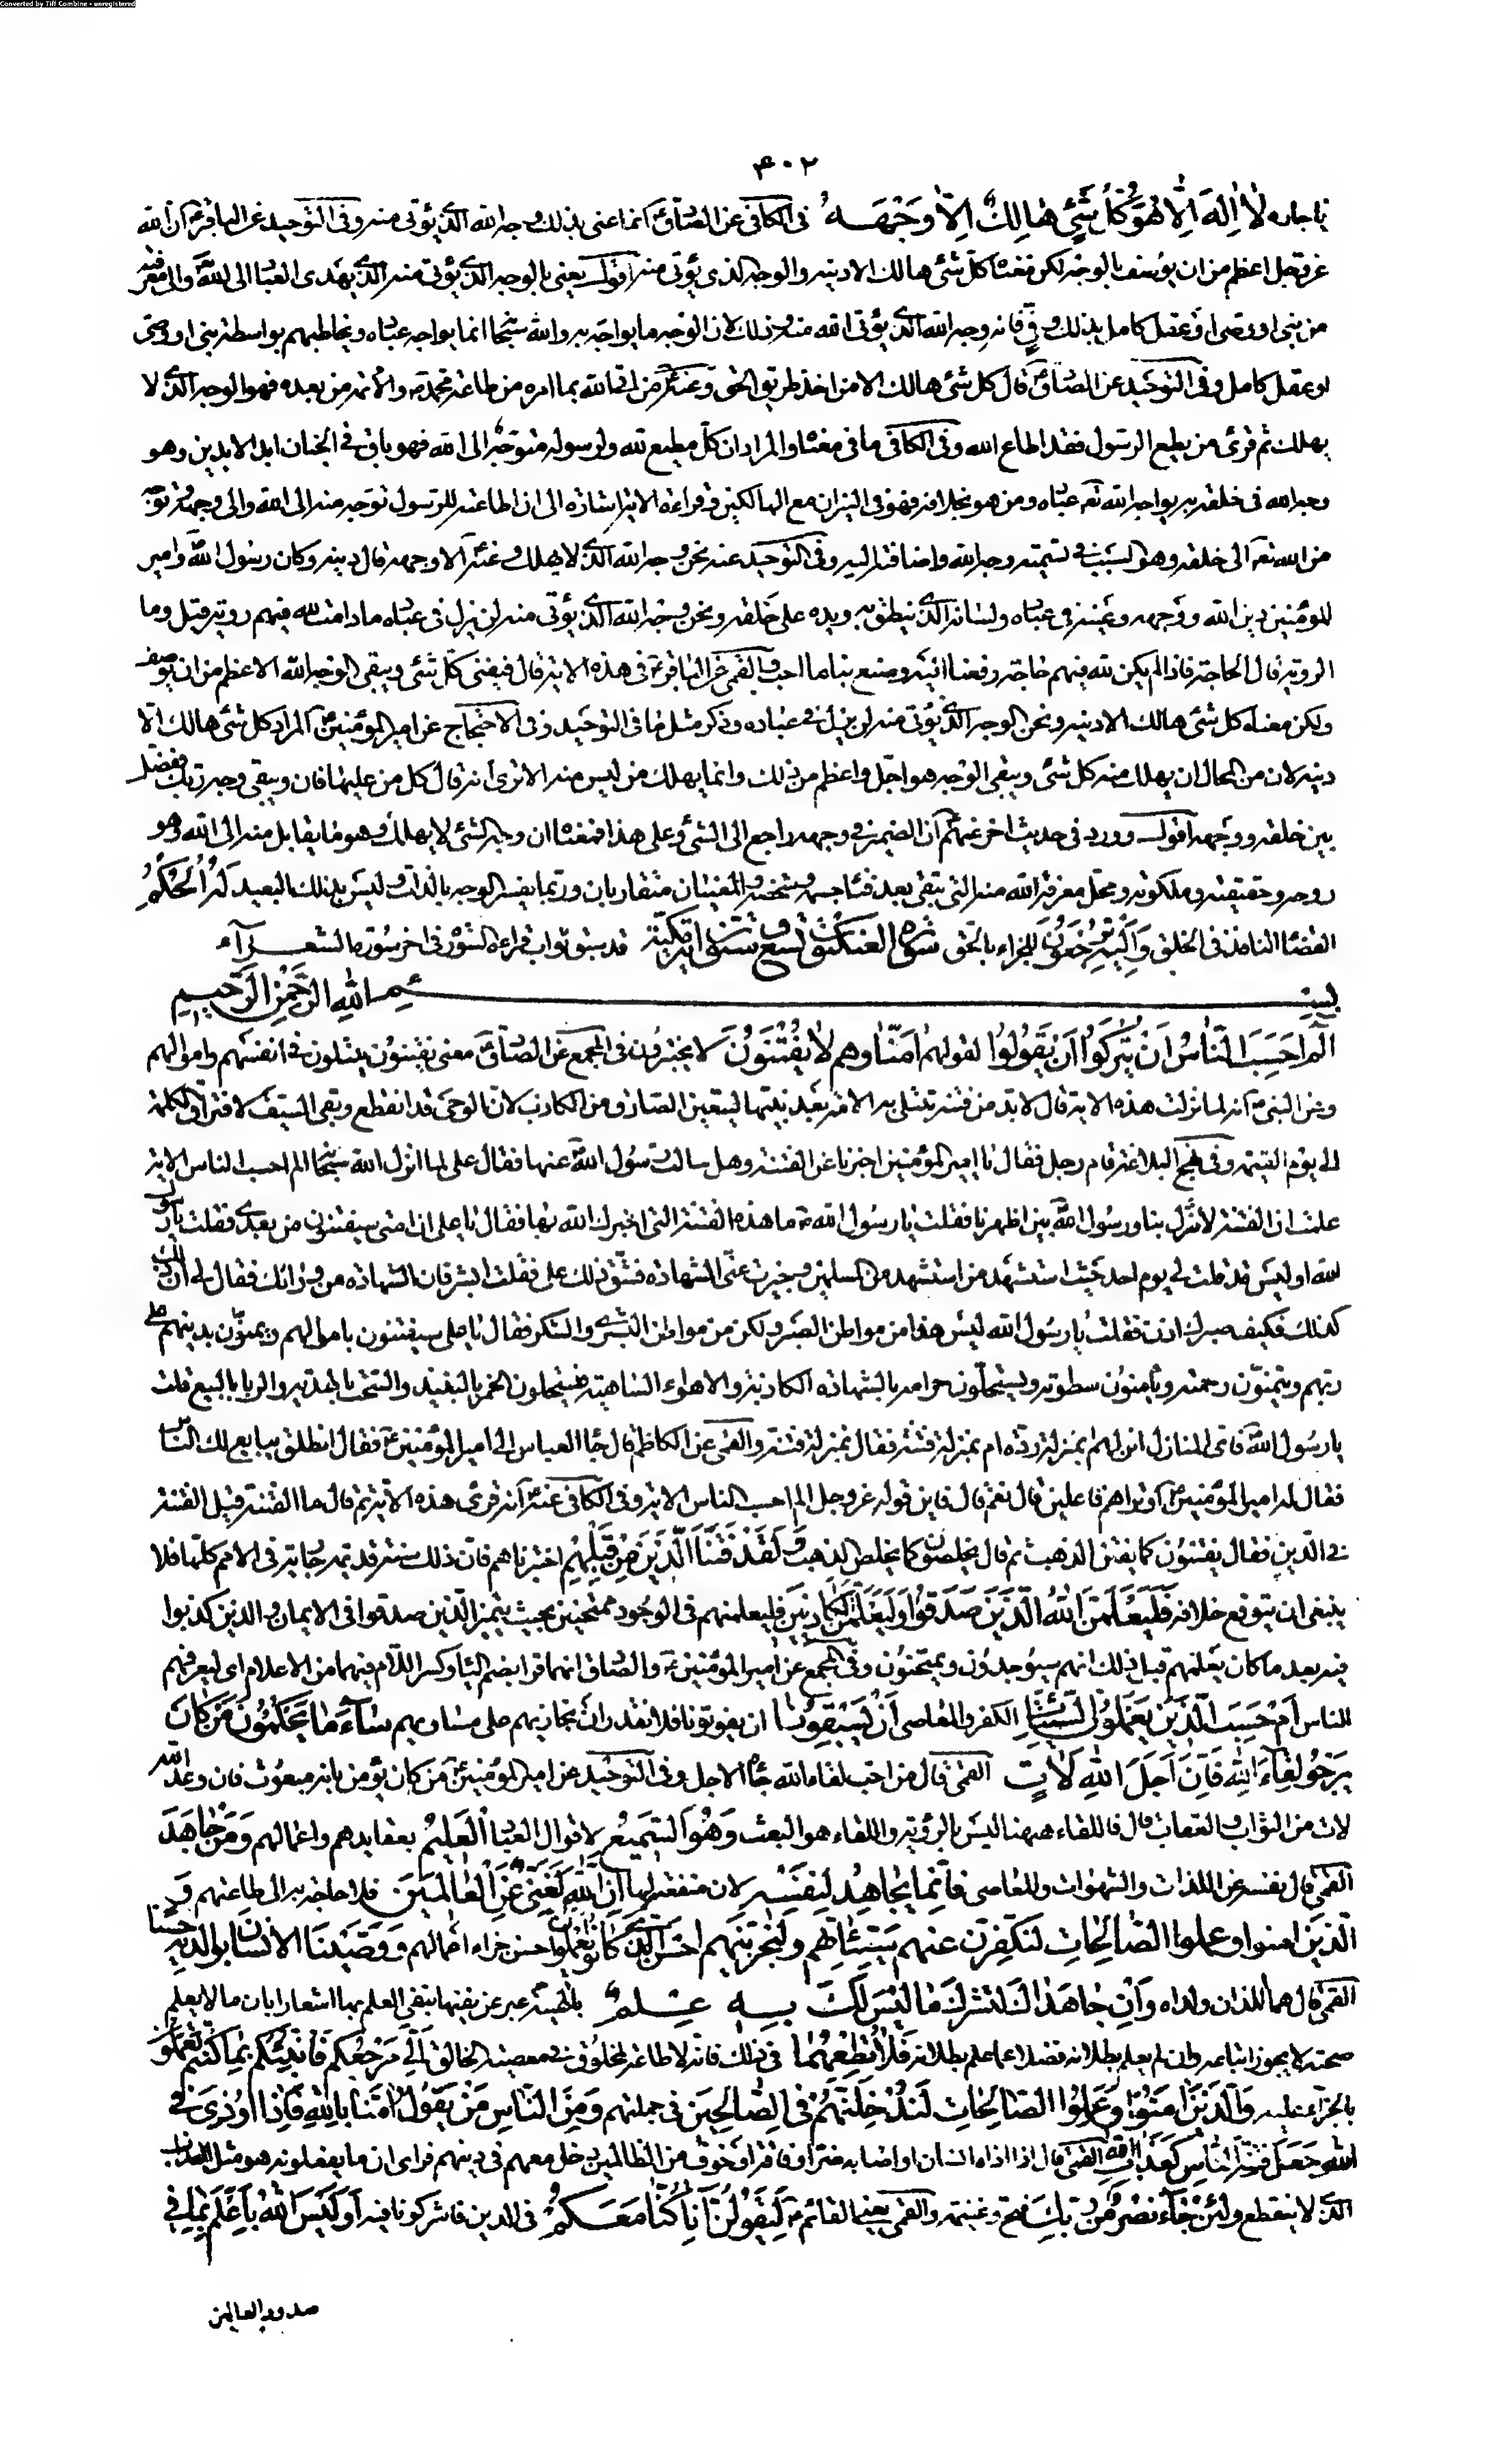 Converted by Tiff Combine - unregistered
۴۰۲
يا جابر لَا إِلَهَ إِلَّا هُوَ كُلُّ شَيْءٍ هَالِكٌ إِلَّا وَجْهَهُ في الكافي عن الصادقؑ انما عنى بذلك وجه الله الذي يؤتى منه وفي التوحيد عن الباقرؑ ان الله
عز وجل اعظم من ان يوصف بالوجه لكن معناه كل شئ هالك الا دينه والوجه الذي يؤتى منه اقول يعني بالوجه الذي يؤتى منه الذي يهدى العباد الى الله والى معرفته
من نبي او وصي او عقل كامل بذلك وفي فانه وجه الله الذي يؤتى الله منه وذلك لان الوجه ما يواجه به والله سبحانه انما يواجه عباده ويخاطبهم بواسطة نبي او وصي
او عقل كامل وفي التوحيد عن الصادقؑ قال كل شئ هالك الا من اخذ طريق الحق وعنهؑ من اتى الله بما امره من طاعة محمدؐ والائمة من بعده فهو الوجه الذي لا
يهلك ثم قرئ من يطع الرسول فقد اطاع الله وفي الكافي ما في معناه والمراد ان كل مطيع لله ولرسوله متوجه الى الله فهو باق في الجنان ابد الابدين وهو
وجه الله في خلقه به يواجه الله تعؔ عباده ومن هو بخلافه فهو في النيران مع الهالكين وفي قراءة الاية اشارة الى ان اطاعته للرسول توجه منه الى الله والى وجهه وتوجه
من الله تعؔ الى خلقه وهو السبب في تسميته وجه الله واضافته اليه وفي التوحيد عنه نحن وجه الله الذي لا يهلك وعنهؑ الا وجهه قال دينه وكان رسول الله وامير
المؤمنين دين الله ووجهه وعينه في عباده ولسانه الذي ينطق به ويده على خلقه ونحن وجه الله الذي يؤتى منه لن نزل في عباده ما دامت لله فيهم روية قيل وما
الروية قال الحاجة فاذا لم يكن لله فيهم حاجة رفعنا اليه وصنع بنا ما احب والقمي عن الباقرؑ في هذه الاية قال فيفنى كل شئ ويبقى الوجه الله الاعظم من ان يوصف
ولكن معناه كل شئ هالك الا دينه ونحن الوجه الذي يؤتى منه لن نزل في عباده وذكر مثل ما في التوحيد وفي الاحتجاج عن امير المؤمنينؑ المراد كل شئ هالك الا
دينه لان من المحال ان يهلك منه كل شئ ويبقى الوجه هو اجل واعظم من ذلك وانما يهلك من ليس منه الا ترى انه قال كل من عليها فان ويبقى وجه ربك ففضل
بين خلقه ووجهه اقول وورد في حديث اخر عنهمؑ ان الضمير في وجهه راجع الى الشئ وعلى هذا فمعناه ان وجه الشئ لا يهلك وهو ما يقابل منه الى الله وهو
روحه وحقيقته وملكوته ومحل معرفة الله منه التي تبقى بعد فناء جسمه وشخصه والمعنيان متقاربان وربما يفسر الوجه بالذات وليس بذلك البعيد لَهُ الْحُكْمُ
القضاء النافذ في الخلق وَإِلَيْهِ تُرْجَعُونَ للجزاء بالحق سورة العنكبوت تسع وستون اية مكية قد سبق ثواب قراءة السور في اخر سورة الشعراء
بِسْمِ اللهِ الرَّحْمٰنِ الرَّحِيمِ
الم أَحَسِبَ النَّاسُ أَنْ يُتْرَكُوا أَنْ يَقُولُوا لقولهم آمَنَّا وَهُمْ لَا يُفْتَنُونَ لا يختبرون في المجمع عن الصادقؑ معنى يفتنون يبتلون في انفسهم واموالهم
وعن النبيؐ انه لما نزلت هذه الاية قال لابد من فتنة تبتلى به الامة بعد نبيها ليتعين الصادق من الكاذب لان الوحي قد انقطع وبقي السيف لافتراق الكلمة
الى يوم القيمة وفي نهج البلاغة قام رجل فقال يا امير المؤمنين اخبرنا عن الفتنة وهل سالت رسول الله عنها فقال علي لما انزل الله سبحانه الم احسب الناس الاية
علمت ان الفتنة لا تنزل بنا ورسول الله بين اظهرنا فقلت يا رسول اللهؐ ما هذه الفتنة التي اخبرك الله بها فقال يا علي ان امتي سيفتنون من بعدي فقلت يا رسول
الله او ليس قد قلت لي يوم احد حيث استشهد من استشهد من المسلمين وحيزت عني الشهادة فشق ذلك علي فقلت ابشر فان الشهادة من ورائك فقال لي ان ذلك
كذلك فكيف صبرك اذن فقلت يا رسول الله ليس هذا من مواطن الصبر ولكن من مواطن البشرى والشكر فقال يا علي سيفتنون باموالهم ويمنون بدينهم على
ربهم ويتمنون رحمته ويأمنون سطوته ويستحلون حرامه بالشهادة الكاذبة والاهواء الساهية فيستحلون الخمر بالنبيذ والسحت بالهدية والربا بالبيع قلت
يا رسول الله فاي المنازل انزلهم ابمنزلة ردة ام بمنزلة فتنة فقال بمنزلة فتنة والقمي عن الكاظم قال جاء العباس الى امير المؤمنينؑ فقال انطلق يبايع لك الناس
فقال له امير المؤمنينؑ اوتراهم فاعلين قال نعم قال فاين قوله عز وجل الم احسب الناس الاية وفي الكافي عنهؑ انه قرئ هذه الاية ثم قال ما الفتنة قيل الفتنة
في الدين فقال يفتنون كما يفتن الذهب ثم قال يخلصون كما يخلص الذهب وَلَقَدْ فَتَنَّا الَّذِينَ مِنْ قَبْلِهِمْ اختبرناهم فان ذلك سنة قديمة جارية في الامم كلها فلا
ينبغي ان يتوقع خلافه فَلَيَعْلَمَنَّ اللهُ الَّذِينَ صَدَقُوا وَلَيَعْلَمَنَّ الْكَاذِبِينَ فليعلمنهم في الوجود ممتحنين بحيث يتميز الذين صدقوا في الايمان والذين كذبوا
فيه بعد ما كان يعلمهم قبل ذلك انهم سيوجدون ويمتحنون وفي المجمع عن امير المؤمنينؑ والصادق انهما قرا بضم الياء وكسر اللام فيهما من الاعلام اي ليعرفنهم
للناس أَمْ حَسِبَ الَّذِينَ يَعْمَلُونَ السَّيِّئَاتِ الكفر والمعاصي أَنْ يَسْبِقُونَا ان يفوتونا فلا نقدر ان نجازيهم على مساويهم سَاءَ مَا يَحْكُمُونَ مَنْ كَانَ
يَرْجُو لِقَاءَ اللهِ فَإِنَّ أَجَلَ اللهِ لَآتٍ القمي قال من احب لقاء الله جاءه الاجل وفي التوحيد عن امير المؤمنينؑ من كان يؤمن بانه مبعوث فان وعد الله
لات من الثواب والعقاب قال فاللقاء ههنا ليس بالرؤية واللقاء هو البعث وَهُوَ السَّمِيعُ لاقوال العباد الْعَلِيمُ بعقايدهم واعمالهم وَمَنْ جَاهَدَ
القمي قال نفسه عن اللذات والشهوات والمعاصي فَإِنَّمَا يُجَاهِدُ لِنَفْسِهِ لان منفعته لها إِنَّ اللهَ لَغَنِيٌّ عَنِ الْعَالَمِينَ فلا حاجة به الى طاعتهم وَ
الَّذِينَ آمنوا وعملوا الصَّالِحَاتِ لَنُكَفِّرَنَّ عَنْهُمْ سَيِّئَاتِهِمْ وَلَنَجْزِيَنَّهُمْ أَحْسَنَ الَّذِي كَانُوا يَعْمَلُونَ احسن جزاء اعمالهم وَوَصَّيْنَا الْإِنْسَانَ بِوَالِدَيْهِ حُسْنًا
القمي قال هما اللذان ولداه وَإِنْ جَاهَدَاكَ لِتُشْرِكَ مَا لَيْسَ لَكَ بِهِ عِلْمٌ بالهيته عبر عن نفيها بنفي العلم بها اشعارا بان ما لا يعلم
صحته لا يجوز اتباعه وان لم يعلم بطلانه فضلا عما علم بطلانه فَلَا تُطِعْهُمَا في ذلك فانه لا طاعة لمخلوق في معصية الخالق إِلَيَّ مَرْجِعُكُمْ فَأُنَبِّئُكُمْ بِمَا كُنْتُمْ تَعْمَلُونَ
بالجزاء عليه وَالَّذِينَ آمَنُوا وَعَمِلُوا الصَّالِحَاتِ لَنُدْخِلَنَّهُمْ فِي الصَّالِحِينَ في جملتهم وَمِنَ النَّاسِ مَنْ يَقُولُ آمَنَّا بِاللهِ فَإِذَا أُوذِيَ فِي
اللهِ جَعَلَ فِتْنَةَ النَّاسِ كَعَذَابِ اللهِ القمي قال اذا اذاه انسان او اصابه ضر او فاقة او خوف من الظالمين دخل معهم في دينهم فراى ان ما يفعلونه هو مثل عذاب
الذي لا ينقطع وَلَئِنْ جَاءَ نَصْرٌ مِنْ رَبِّكَ فتح وغنيمة والقمي يعني القائمؑ لَيَقُولُنَّ إِنَّا كُنَّا مَعَكُمْ في الدين فاشركونا فيه أَوَلَيْسَ اللهُ بِأَعْلَمَ بِمَا فِي
صدور العالمين